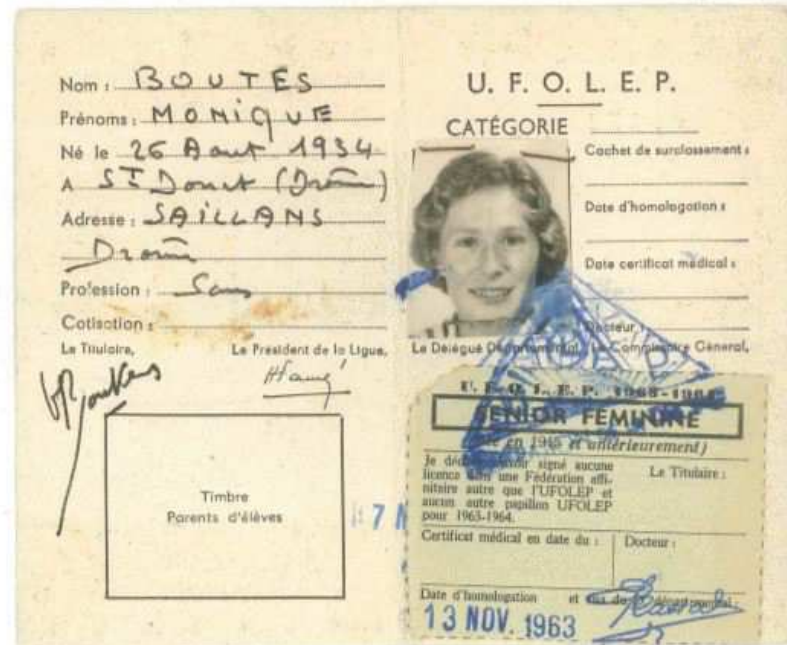 Nom : BOUTES
Prénoms : MONIQUE
Né le 26 Aout 1934
A St Donat (Drôme)
Adresse : SAILLANS
Drôme
Profession : Sans
Cotisation :
Le Titulaire, Le Président de la Ligue,
Timbre
Parents d'élèves
U. F. O. L. E. P.
CATÉGORIE
Cachet de surclassement :
Date d'homologation :
Date certificat médical :
Docteur :
Le Délégué Départemental, Le Commissaire Général,
U. F. O. L. E. P. 1963-1964
SENIOR FÉMININE
(née en 1945 et antérieurement)
Je déclare avoir signé aucune
licence dans une Fédération affi-
nitaire autre que l'UFOLEP et
aucun autre papillon UFOLEP
pour 1963-1964.
Le Titulaire :
Certificat médical en date du :
Docteur :
Date d'homologation et
13 NOV. 1963